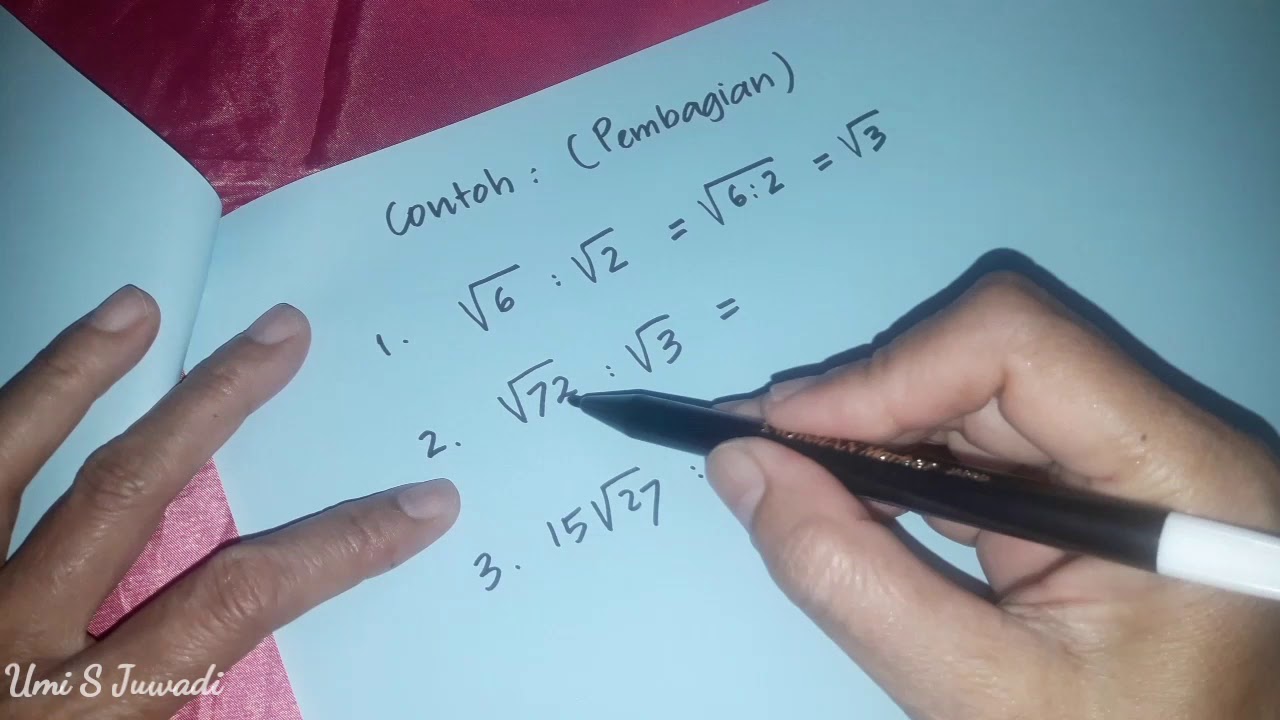 Contoh : (Pembagian)
1. √6 : √2 = √6:2 = √3
2. √72 : √3 =
3. 15√27 :
Umi S Juwadi